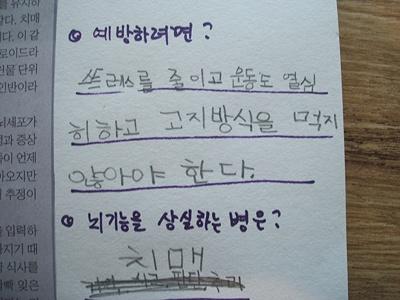 를 유지하
같다. 치매
다. 이 같
로이드라
단위
인반이라
뇌세포가
증상
들이 언제
아오지만
추정이
을 입력하
지기 때
식사를
빡 잊은
예방하려면?
쓰트레스를 줄이고 운동도 열심
히하고 고지방식을 먹지
않아야 한다.
뇌기능을 상실하는 병은?
치매